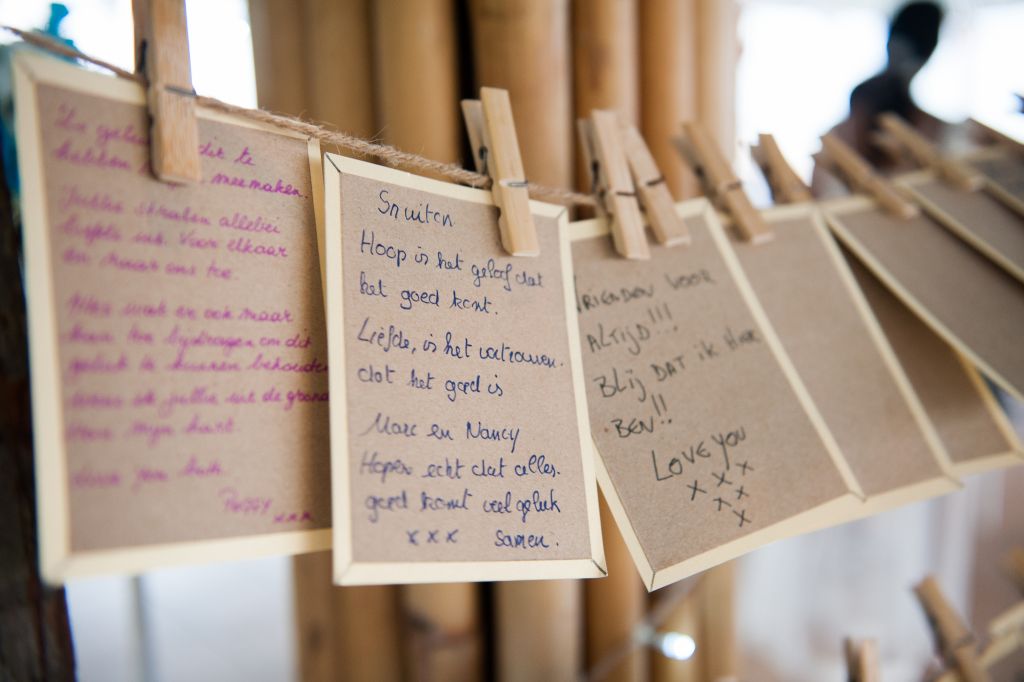 dit te
hebben meemaken.
Jullie stralen allebei
liefde uit. Voor elkaar
en naar ons toe.
Alles wat er ook maar
kan toe bijdragen om dit
geluk te kunnen behouden
wens ik jullie uit de grond
van mijn hart.
Peggy
xxx
Snuiten
Hoop is het geloof dat
het goed komt.
Liefde, is het vertrouwen.
dat het goed is
Marc en Nancy
Hopen echt dat alles.
goed komt veel geluk
x x x samen.
VRIENDEN VOOR
ALTIJD!!!
BLIJ DAT ik HIER
BEN!!
LOVE YOU
x x x
x x
x